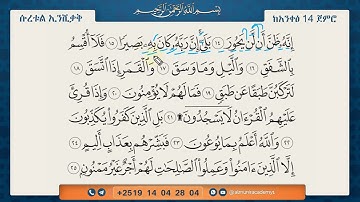 بسم الله الرحمن الرحيم
ሱረቱል ኢንሺቃቅ
ከአንቀፅ 14 ጀምሮ
إِنَّهُ ظَنَّ أَن لَّن يَحُورَ ١٤ بَلَىٰ إِنَّ رَبَّهُ كَانَ بِهِ بَصِيرًا ١٥ فَلَا أُقْسِمُ
بِالشَّفَقِ ١٦ وَاللَّيْلِ وَمَا وَسَقَ ١٧ وَالْقَمَرِ إِذَا اتَّسَقَ ١٨
لَتَرْكَبُنَّ طَبَقًا عَن طَبَقٍ ١٩ فَمَا لَهُمْ لَا يُؤْمِنُونَ ٢٠ وَإِذَا قُرِئَ
عَلَيْهِمُ الْقُرْءَانُ لَا يَسْجُدُونَ ۩ ٢١ بَلِ الَّذِينَ كَفَرُوا يُكَذِّبُونَ
٢٢ وَاللَّهُ أَعْلَمُ بِمَا يُوعُونَ ٢٣ فَبَشِّرْهُم بِعَذَابٍ أَلِيمٍ ٢٤
إِلَّا الَّذِينَ ءَامَنُوا وَعَمِلُوا الصَّالِحَاتِ لَهُمْ أَجْرٌ غَيْرُ مَمْنُونٍ ٢٥
+2519 14 04 28 04